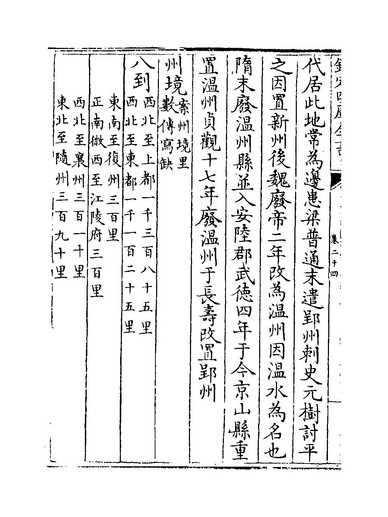 欽定四庫全書
卷二十四
代居此地常為邊患梁普通末遣郢州刺史元樹討平
之因置新州後魏廢帝二年改為温州因温水為名也
隋末廢温州縣並入安陸郡武德四年于今京山縣重
置温州貞觀十七年廢温州于長壽改置郢州
州境案州境里數傳寫缺
八到
西北至上都一千三百八十五里
西北至東都一千一百二十五里
東南至復州三百里
正南微西至江陵府三百里
西北至襄州三百一十里
東北至隨州三百九十里